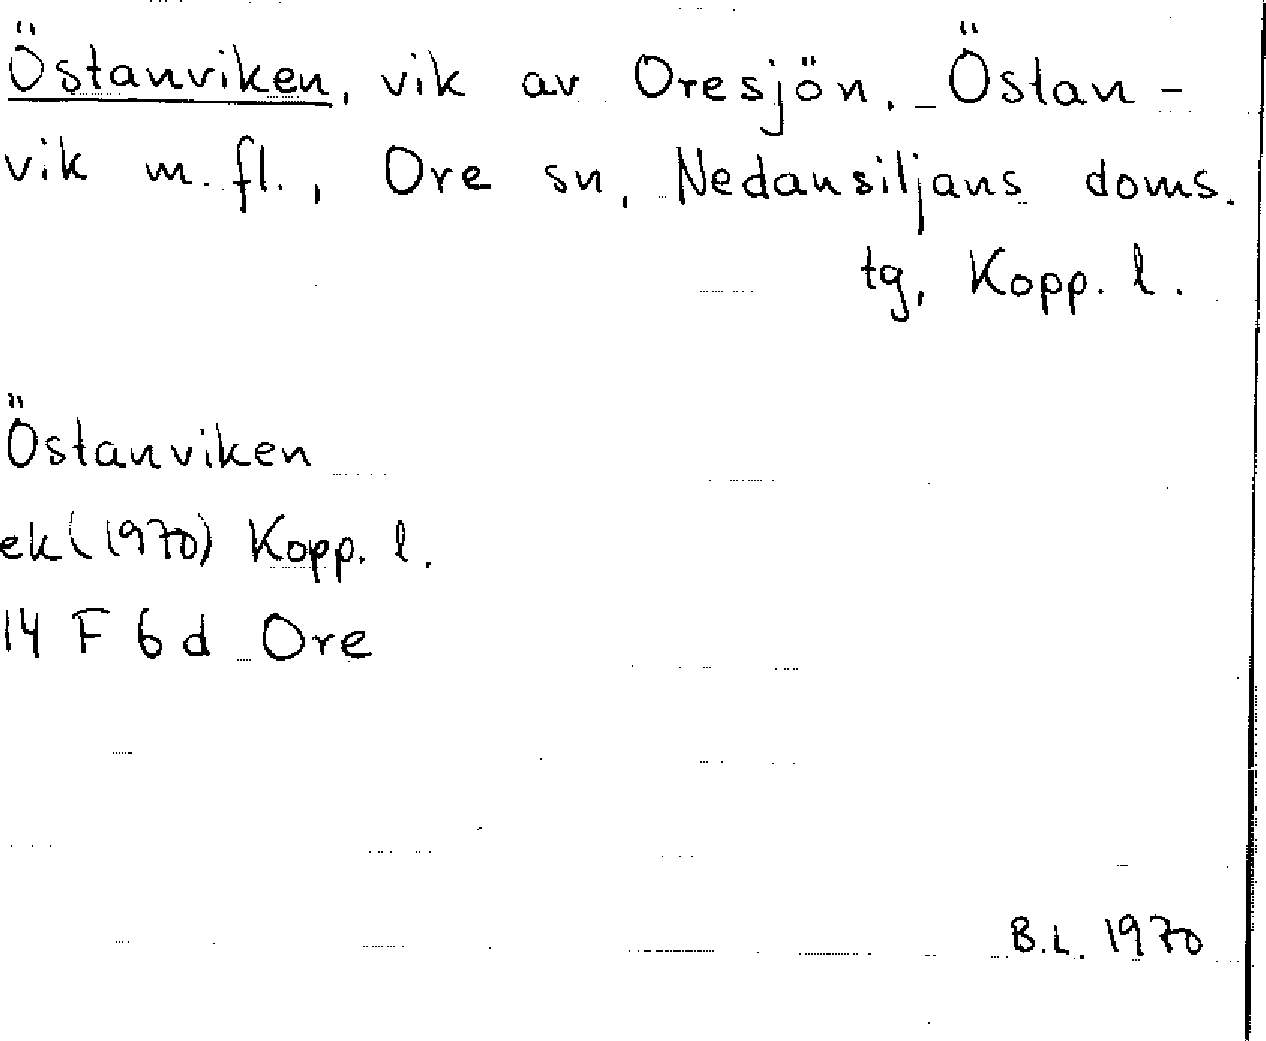 Östanviken, vik av Oresjön. Östan-
vik m. fl., Ore sn, Nedansiljans doms.
tg, Kopp. l.
Östanviken
ek (1970) Kopp. l.
14 F 6 d Ore
B.L. 1970